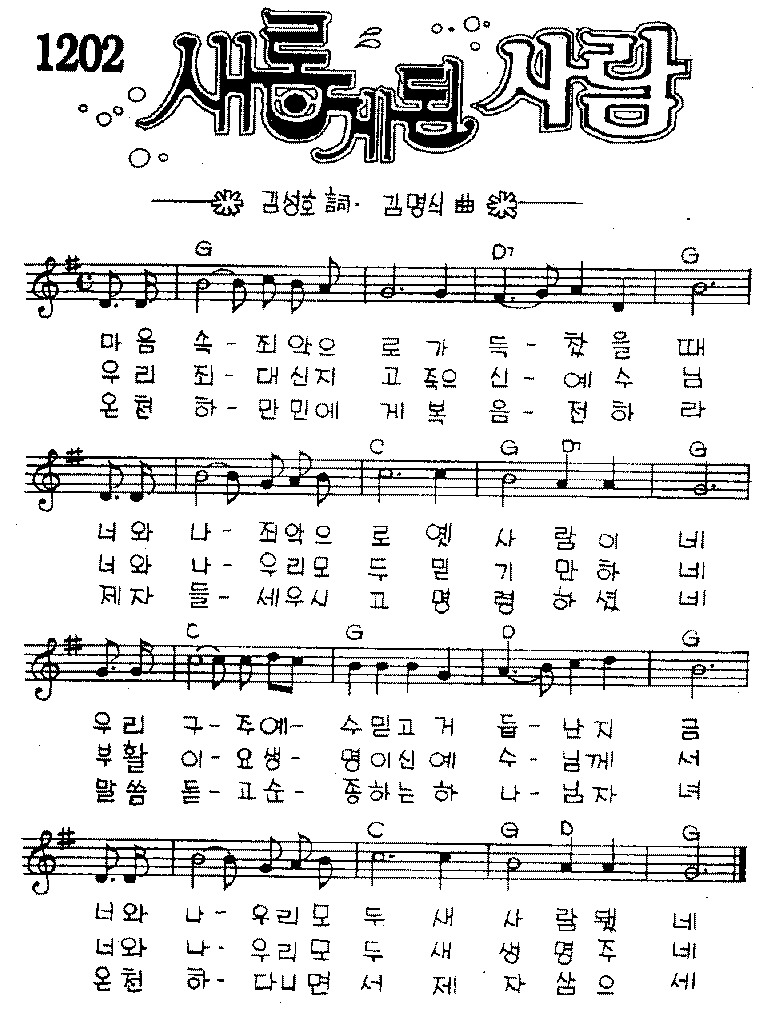 1202
새롭게된 사람
김성호 詞· 김명식 曲
G D7 G
마 음 속 - 죄 악 으 로 가 득 - 찼 을 때
우 리 죄 - 대 신 지 고 죽 으 신 - 예 수 님
온 천 하 - 만 민 에 게 복 음 - 전 하 라
C G D7 G
너 와 나 - 죄 악 으 로 옛 사 람 이 네
너 와 나 - 우 리 모 두 믿 기 만 하 네
제 자 들 - 세 우 시 고 명 령 하 셨 네
C G D G
우 리 구 - 주 예 - 수 믿 고 거 듭 - 난 지 금
부 활 이 - 요 생 - 명 이 신 예 수 - 님 께 서
말 씀 듣 - 고 순 - 종 하 는 하 나 - 님 자 녀
C G D G
너 와 나 - 우 리 모 두 새 사 람 됐 네
너 와 나 - 우 리 모 두 새 생 명 주 네
온 천 하 - 다 니 면 서 제 자 삼 으 세